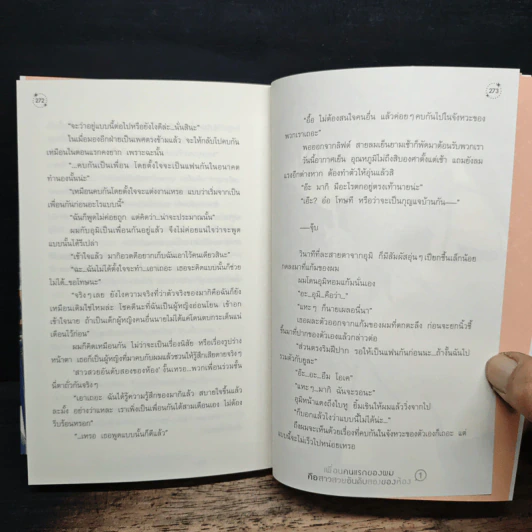 272
"จะว่าอยู่แบบนี้ต่อไปหรือยังไงดีล่ะ..นั่นสินะ"
ในเมื่อมองอีกฝ่ายเป็นเพศตรงข้ามแล้ว จะให้กลับไปคบกัน
เหมือนในตอนแรกคงยาก เพราะฉะนั้น
"...คบกันเป็นเพื่อน โดยตั้งใจจะเป็นแฟนกันในอนาคต
ทำนองนั้นน่ะ"
"เหมือนคบกันโดยตั้งใจจะแต่งงานเหรอ แบบว่าเริ่มจากเป็น
เพื่อนกันก่อนอะไรแบบนี้"
"ฉันก็พูดไม่ค่อยถูก แต่คิดว่า..น่าจะประมาณนั้น"
ผมกับภูมิเป็นเพื่อนกันอยู่แล้ว จึงไม่ค่อยแน่ใจว่าจะพูด
แบบนั้นได้รึเปล่า
"เข้าใจแล้ว มากิอวดคืออยากเก็บฉันเอาไว้คนเดียวสินะ"
"ฉะ..ฉันไม่ได้ตั้งใจจะทำ...เอาเถอะ เธอจะคิดแบบนั้นก็ช่วย
ไม่ได้..ขอโทษนะ"
"จริงๆ เลย ยังไงความจริงที่ว่าตัวจริงของมากิคือฉันก็ยัง
เหมือนเดิมใช่ไหมล่ะ โชคดีนะที่ฉันเป็นผู้หญิงอ่อนโยน เข้าอก
เข้าใจนาย ถ้าเป็นเด็กผู้หญิงคนอื่นนายไม่ได้แค่โดนตบกระเด็นแน่
เดือนไว้ด้วย"
ผมก็คิดเหมือนกัน ไม่ว่าจะเป็นนิสัย หรือเรื่องรูปร่าง
หน้าตา เธอก็เป็นผู้หญิงที่มาคบกับผมแล้วชวนให้รู้สึกเสียดายจริงๆ
"สาวสวยอันดับสองของห้อง" งั้นเหรอ...พวกเพื่อนร่วมชั้น
นี่ตาถั่วกันจริงๆ
"เอาเถอะ ฉันได้รู้ความรู้สึกของมากิแล้ว สบายใจขึ้นแล้ว
ละมั้ง อย่างว่าแหละ เราเพิ่งเป็นเพื่อนกันได้สามเดือนเอง ไม่ต้อง
รีบร้อนหรอก"
"...เหรอ เธอพูดแบบนั้นก็ดีแล้ว"
273
"อื้อ ไม่ต้องสนใจคนอื่น แล้วค่อยๆ คบกันไปในจังหวะของ
พวกเราเถอะ"
พอออกจากลิฟต์ สายลมเย็นยามเช้าก็พัดมาต้อนรับพวกเรา
วันนี้อากาศเย็น อุณหภูมิไม่ถึงสิบองศาตั้งแต่เช้า แถมยังลม
แรงอีกต่างหาก ต้องทำตัวให้อุ่นแล้วสิ
"อ๊ะ มากิ มีอะไรตกอยู่ตรงเท้านายน่ะ"
"เอ๊ะ? อ๋อ โทษที หรือว่าจะเป็นกุญแจบ้านกัน—"
—จุ๊บ
วินาทีที่ละสายตาจากภูมิ ก็มีสัมผัสอุ่นๆ เปียกชื้นเล็กน้อย
กดลงมาที่แก้มของผม
ผมโดนภูมิหอมแก้มนั่นเอง
"อะ..ภูมิ..คือว่า..."
"แหะๆ ก็นายเผลอนี่นา"
เธอผละตัวออกจากแก้มของผมที่ตกตะลึง ก่อนจะยกนิ้วชี้
ขึ้นมาที่ปากของตัวเองแล้วกล่าวต่อ
"ส่วนตรงริมฝีปาก รอให้เป็นแฟนกันก่อนนะ..ถ้างั้นฉันไป
รวมตัวกับยูละ"
"อ๊ะ..อะ..อืม โอเค"
"แหะๆ..มากิ ฉันจะรอนะ"
ภูมิหน้าแดงถึงใบหู ยิ้มเขินให้ผมแล้ววิ่งจากไป
"ก็บอกแล้วไงว่าแบบนี้ไม่ได้น่ะ..."
ถึงผมจะเห็นด้วยเรื่องที่คบกันในจังหวะของตัวเองก็เถอะ แต่
แบบนี้จะไม่เร็วไปหน่อยเหรอ
เพื่อนคนแรกของผม
คือสาวสวยอันดับสองของห้อง
1